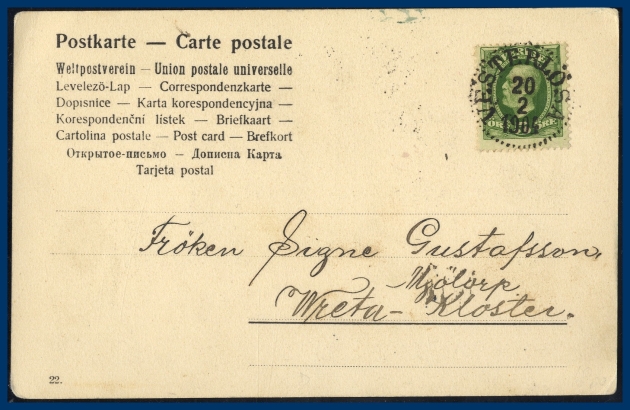 Postkarte — Carte postale
Weltpostverein — Union postale universelle
Levelező-Lap — Correspondenzkarte —
Dopisnice — Karta korespondencyjna —
Korespondenční lístek — Briefkaart —
Cartolina postale — Post card — Brefkort
Открытое-письмо — Дописна Карта
Tarjeta postal
VESTERLÖSA
20
2
1904
Fröken Signe Gustafsson,
Mjölorp
Wreta-Kloster.
22.